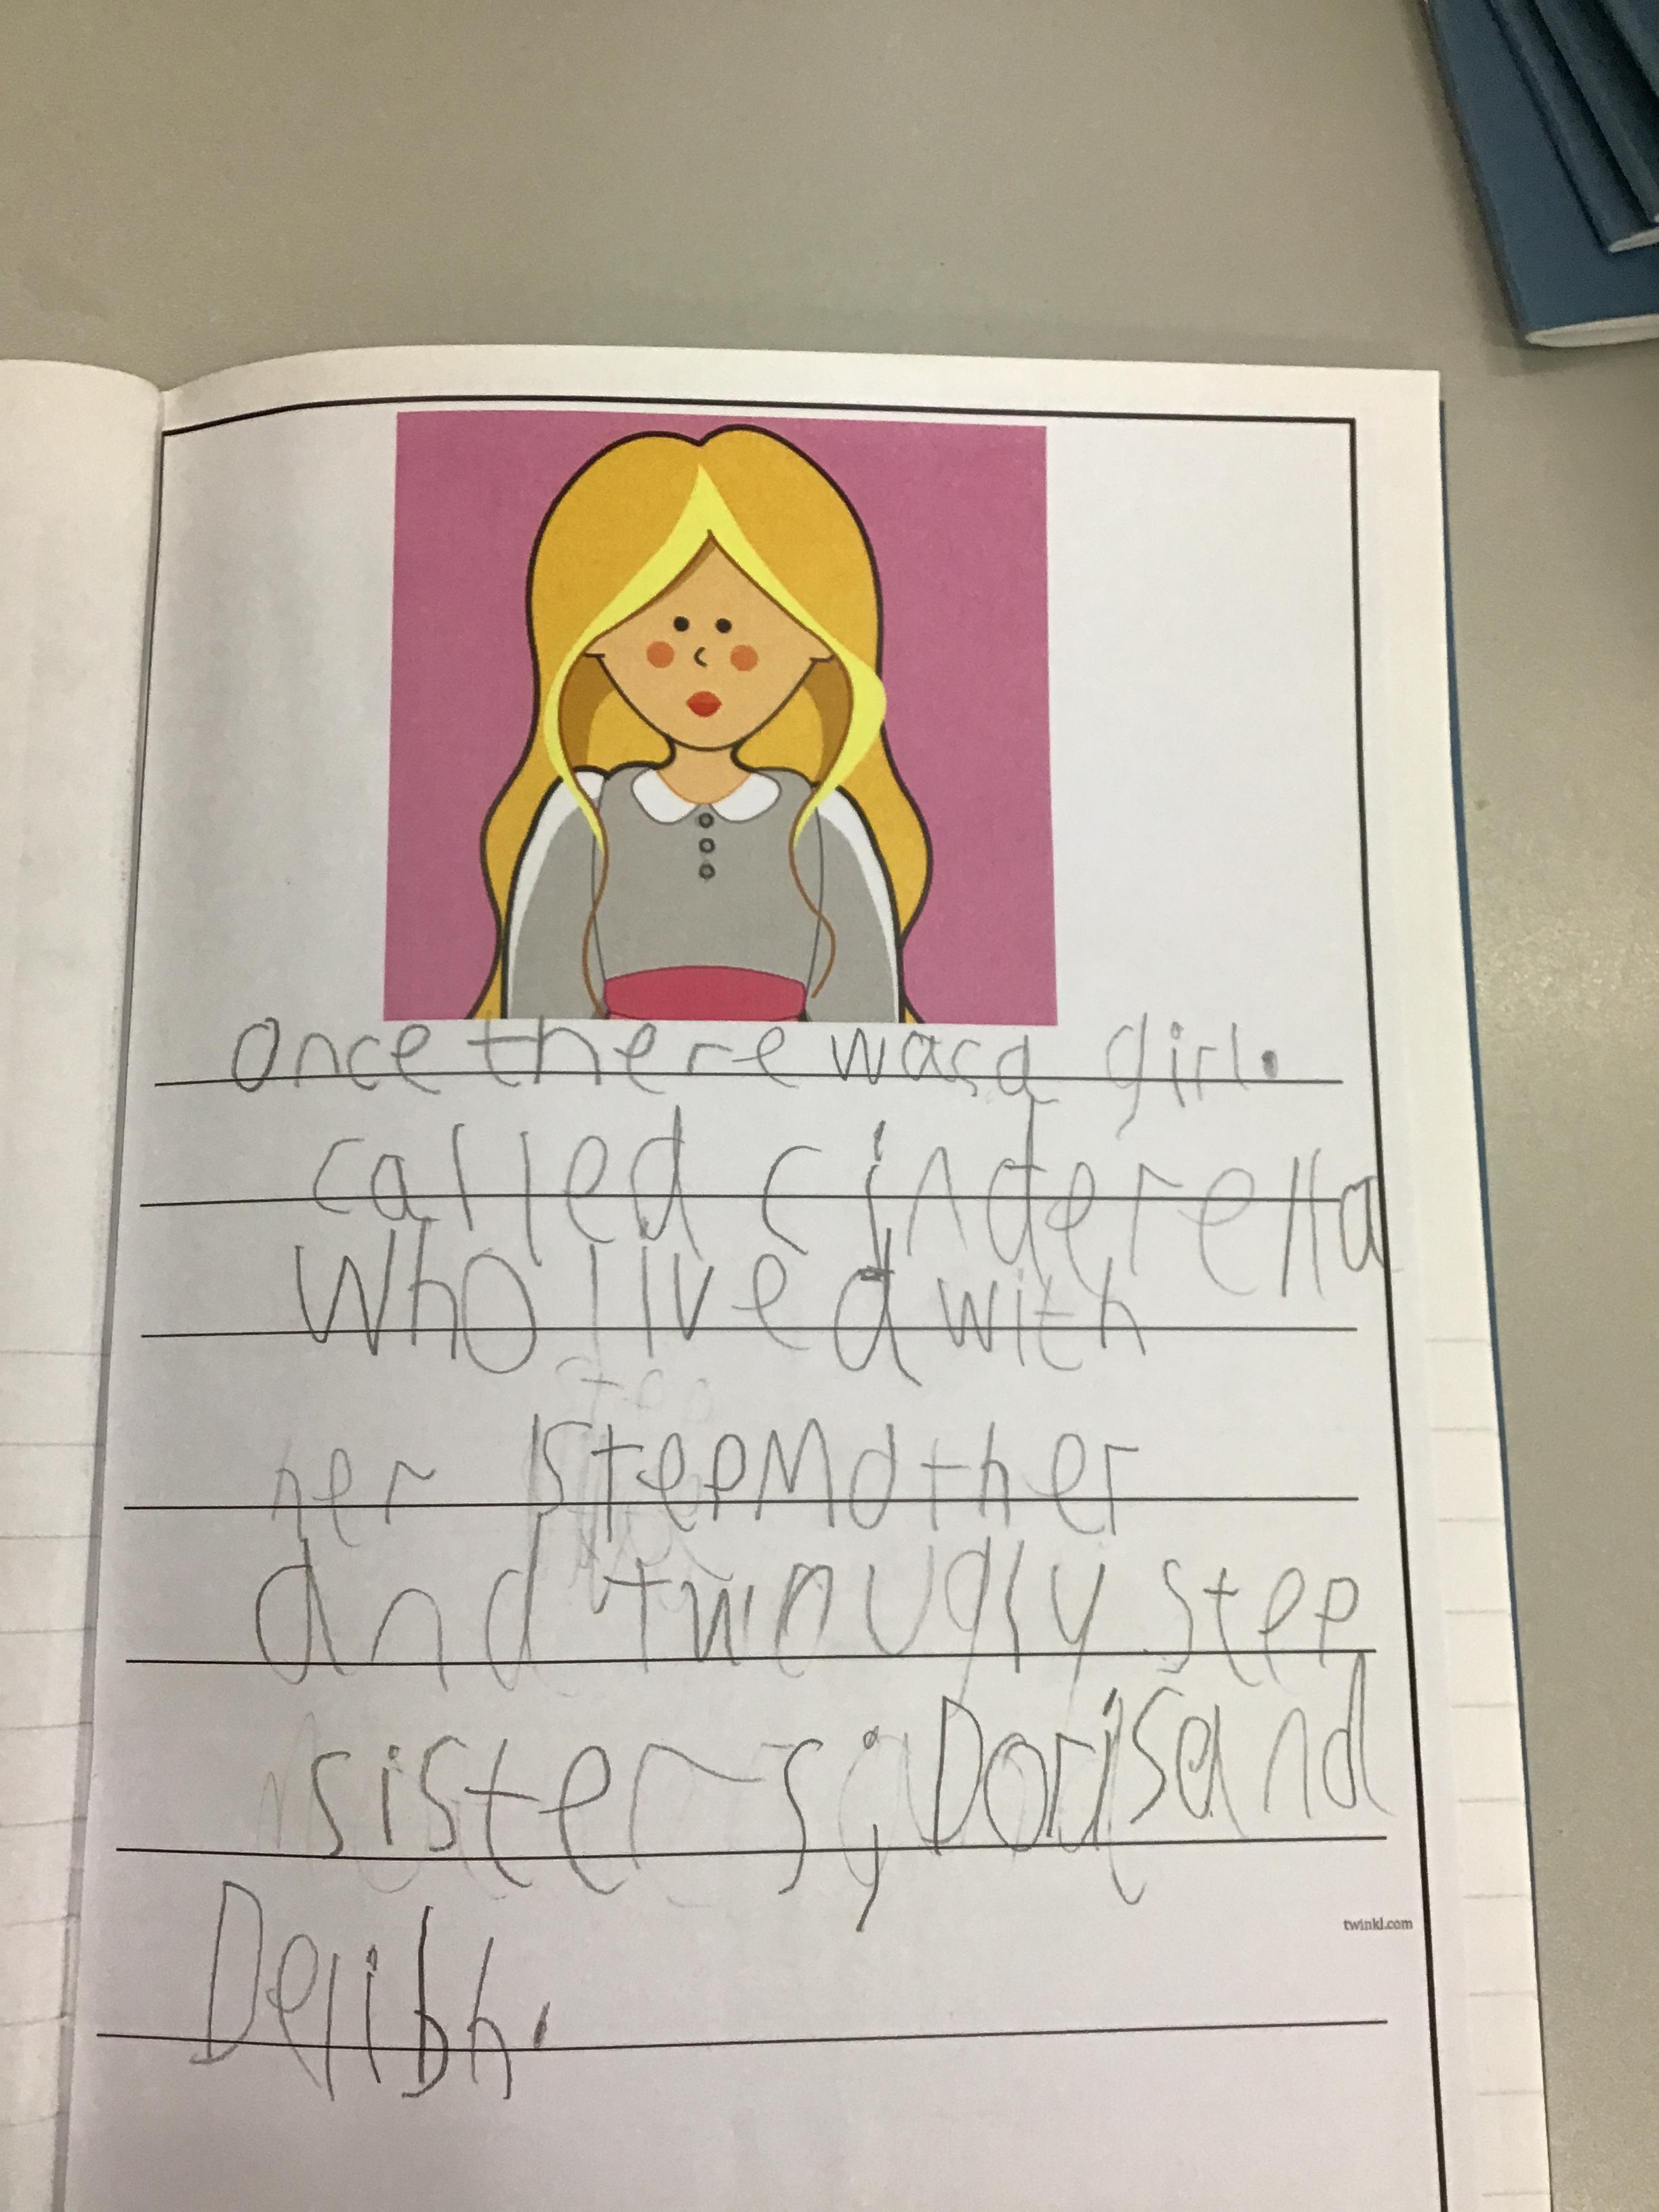 once there was a girl.
called cinderella
who lived with
her stepMother
and twin Ugly step
sisters; Doris and
twinkl.com
Delibh.